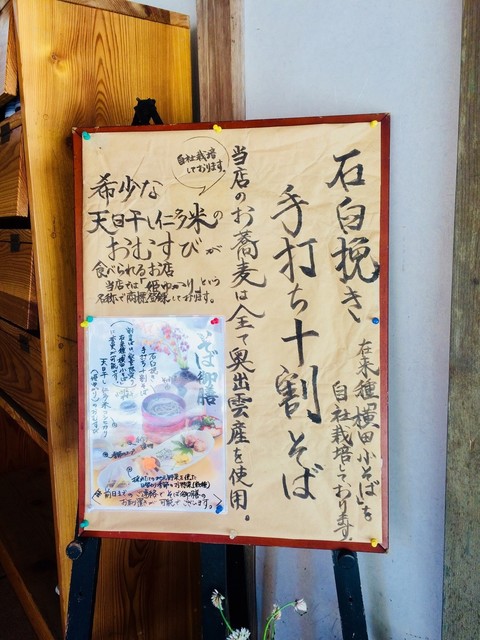 石臼挽き
手打ち十割そば
在来種「横田小そば」を
自社栽培しております。
当店のお蕎麦は全て奥出雲産を使用。
自社栽培
しております。
希少な
天日干し仁多米の
おむすびが
食べられるお店
当店では「姫ゆかり」という
名称で商標登録しております。
そば御膳
石臼挽き
手打ち十割そば
天日干し
※前日までのご連絡でそば御膳の
お取り置きが可能でございます。